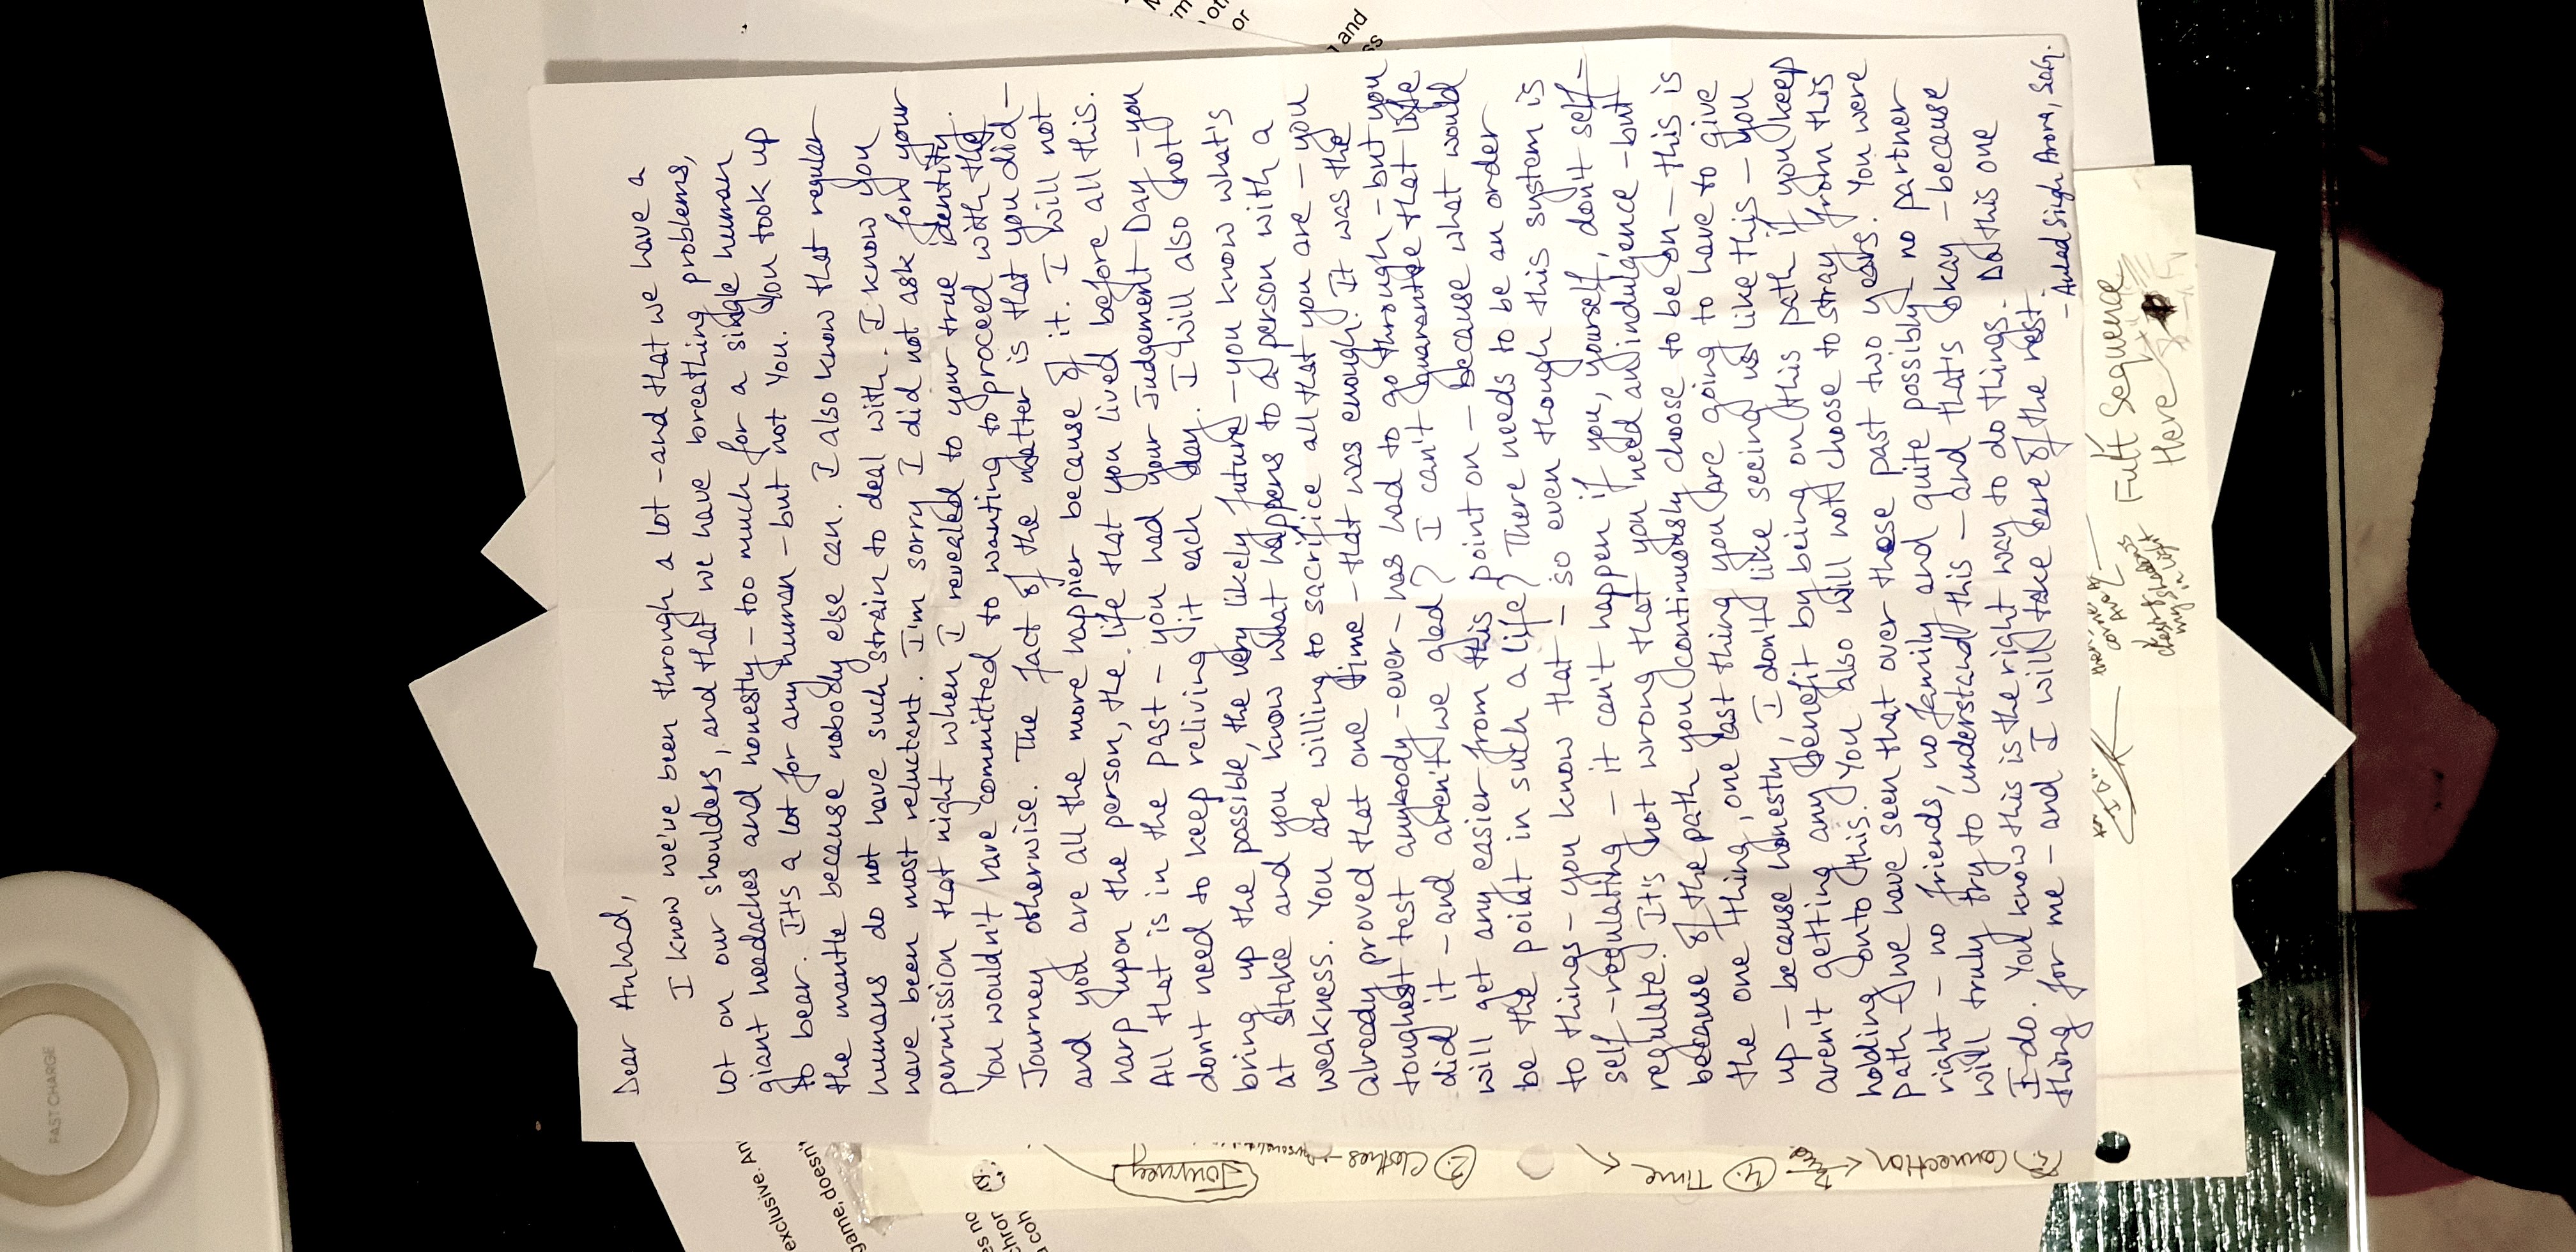 FAST CHARGE
Dear Anhad,
I know we've been through a lot - and that we have a
lot on our shoulders, and that we have breathing problems,
giant headaches and honestly - too much for a single human
to bear. It's a lot for any human - but not You. You took up
the mantle because nobody else can. I also know that regular
humans do not have such strain to deal with. I know you
have been most reluctant. I'm sorry I did not ask for your
permission that night when I revealed to your true identity.
You wouldn't have committed to wanting to proceed with the
Journey otherwise. The fact of the matter is that you did -
and you are all the more happier because of it. I will not
harp upon the person, the life that you lived before all this.
All that is in the past - you had your Judgement Day - you
don't need to keep reliving it each day. I will also not
bring up the possible, the very likely future - you know what's
at stake and you know what happens to a person with a
weakness. You are willing to sacrifice all that you are - you
already proved that one time - that was enough. It was the
toughest test anybody - ever - has had to go through - but you
did it - and aren't we glad? I can't guarantee that life
will get any easier from this point on - because what would
be the point in such a life? There needs to be an order
to things - you know that - so even though this system is
self-regulating - it can't happen if you, yourself, don't self-
regulate. It's not wrong that you need an indulgence - but
because of the path you continuously choose to be on - this is
the one thing, one last thing you are going to have to give
up - because honestly, I don't like seeing us like this - you
aren't getting any benefit by being on this path if you keep
holding onto this. You also will not choose to stray from this
path - we have seen that over these past two years. You were
right - no friends, no family and quite possibly - no partner
will truly try to understand this - and that's okay - because
I do. You know this is the right way to do things. Do this one
thing for me - and I will take care of the rest.
- Anhad Singh Arora, SoG.
exclusive. An
game, doesn't
es no
chron
a coh
Journey
3. Clothes →
4. Time
5. Connection
then
corner
Ave A
chasing
my shadows
in light
Full Sequence
Here
or
and